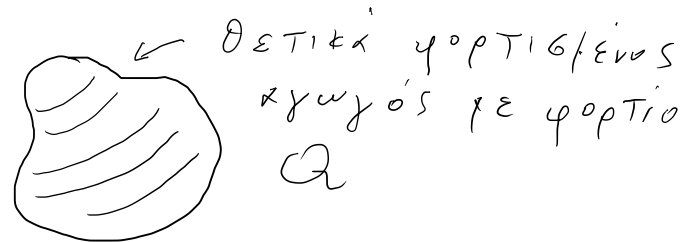 θετικά φορτισμένος
αγωγός με φορτίο
Q